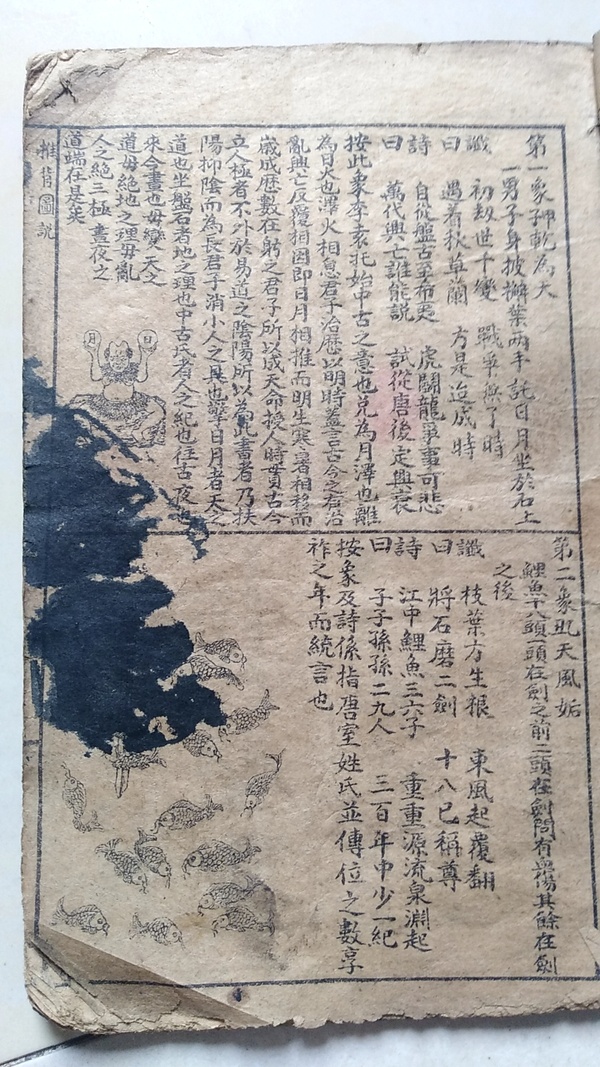 第一象卦乾為天
一男子身披槲葉兩手託日月坐於石上
讖曰
初劫世千變 戰爭無了時
遇着秋草蘭 方是造成時
詩曰
自從盤古至希夷 虎鬪龍爭事可悲
萬代興亡誰能說 試從唐後定興衰
按此象李袁托始中古之意也兌為月澤也離
為日火也澤火相息君子治歷以明時蓋言古今之有治
亂興亡反覆相因即日月相推而明生寒暑相移而
歲成歷數在躬之君子所以成天命授人時貫古今
立人極者不外於易道之陰陽所以為此畫者乃扶
陽抑陰而為長君子消小人之具也擎日月者天之
道也坐盤石者地之理也中古衣者人之紀也往古夜也
來今晝也毋變天之
道毋絕地之理毋亂
人之絕三極晝夜之
道端在是矣
推背圖說
日
月
第二象卦天風姤
鯉魚十八頭一頭在劍之前二頭在劍間有無傷其餘在劍
之後
讖曰
枝葉方生根 東風起覆翻
將石磨二劍 十八已稱尊
詩曰
江中鯉魚三六子 重重源流泉淵起
子子孫孫二九人 三百年中少一紀
按象及詩係指唐室姓氏並傳位之數享
祚之年而統言也